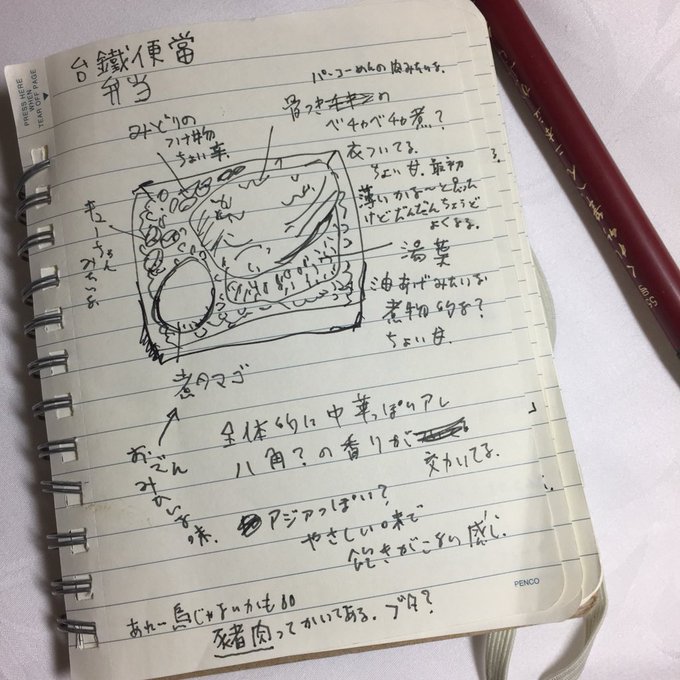 PRESS HERE
WHEN
TEAR OFF PAGE
台鐵便當
弁当
パーコーめんの肉みたいな
骨つき の
ベチャベチャ煮?
衣ついてる。
ちょい甘。最初
薄いかな〜と思った
けどだんだんちょうど
よくなる。
みどりの
つけ物
ちょい辛。
キューちゃん
みたいな
湯葉
油あげみたいな
煮物的な?
ちょい甘。
煮タマゴ
おでん
みたいな
味。
全体的に中華っぽいアレ
八角?の香りが
効いてる。
アジアっぽい?
やさしい味で
飽きがこない感じ。
あれー鳥じゃないかも
豬肉ってかいてある。ブタ?
PENCO